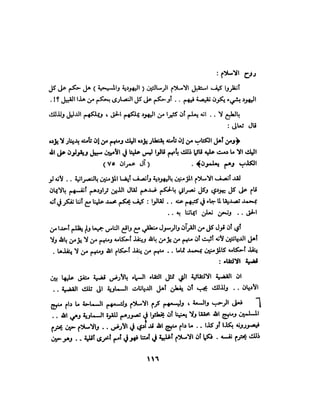 روح الاسلام :
أنظروا كيف استقبل الاسلام الرسالتين ( اليهودية والمسيحية ) هل حكم على كل
اليهود بشيء يكون نقيصة فيهم . . أو حكم على كل النصارى بحكم من هذا القبيل ؟ ! .
بالطبع لا . . انه يعلم أن كثيرا من اليهود يملكهم الحق ، ويملكهم الدليل ولذلك
قال تعالى :
﴿ومن أهل الكتاب من إن تأمنه بقنطار يؤده اليك ومنهم من إن تأمنه بدينار لا يؤده
اليك الا ما دمت عليه قائما ذلك بأنهم قالوا ليس علينا في الأميين سبيل ويقولون على الله
الكذب وهم يعلمون﴾ . ( آل عمران ٧٥ )
لقد أنصف الاسلام المؤمنين باليهودية وأنصف أيضا المؤمنين بالنصرانية . . لأنه لو
قام على كل يهودي وكل نصراني بالحكم ضدهم لقال الذين تراودهم أنفسهم بالايمان
بمحمد تصديقا لما جاء في كتبهم عنه . . لقالوا : كيف يحكم محمد علينا مع أننا نفكر في أنه
الحق . . ونحن نعلن ايماننا به . .
أي أن قول كل من القرآن والرسول منطقي مع واقع الناس جميعا ولم يظلم أحدا من
أهل الديانتين لأنه أثبت أن منهم من يؤمن بالله وينفذ أحكامه ومنهم من لا يؤمن بالله ولا
ينفذ أحكامه كالمؤمنين بمحمد تماما . . منهم من ينفذ أحكام الله ومنهم من لا ينفذها .
قضية الالتقاء :
ان القضية الالتقائية التي تمثل التقاء السماء بالأرض قضية متفق عليها بين
الأديان . . ولذلك يجب أن يفطن أهل الديانات السماوية الى تلك القضية . .
فعلى الرحب والسعة ، وليسعهم كرم الاسلام ولتسعهم السماحة ما دام منهج
المسلمين ومنهج الله محققا ولا يعنينا أن يخطئوا في تصورهم للقوة السماوية وهي الله . .
فيصورونه بكذا أو كذا . . ما دام منهج الله قد أدي في الأرض . . والاسلام حين يحترم
ذلك يحترم نفسه . فكما أن الاسلام أغلبية في أمتنا فهو في أمم أخرى أقلية . . وحين هو
١١٦